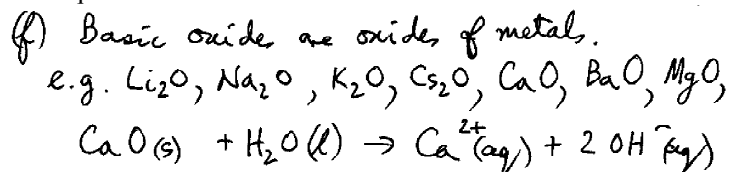 (f) Basic oxides are oxides of metals.
e.g. Li₂O, Na₂O, K₂O, Cs₂O, CaO, BaO, MgO,
CaO(s) + H₂O(l) → Ca²⁺(aq) + 2 OH⁻(aq)